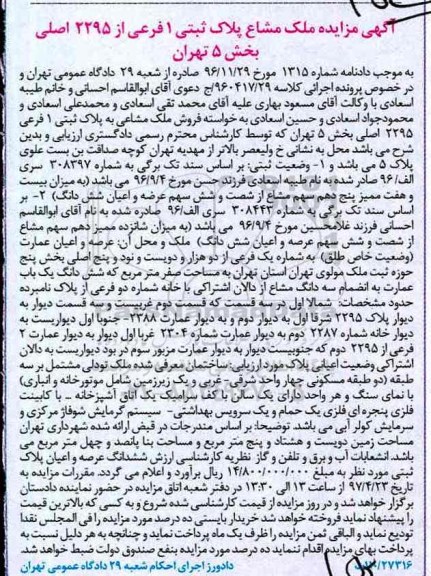 آگهی مزایده ملک مشاع پلاک ثبتی ۱ فرعی از ۲۲۹۵ اصلی
بخش ۵ تهران
به موجب دادنامه شماره ۱۳۱۵ مورخ ۹۶/۱۱/۲۹ صادره از شعبه ۲۹ دادگاه عمومی تهران و
در خصوص پرونده اجرائی کلاسه ۹۶۰۴۱۷/۲۹ج دعوی آقای ابوالقاسم احسانی و خانم طیبه
اسعادی با وکالت آقای مسعود بهاری علیه آقای محمد تقی اسعادی و محمدعلی اسعادی و
محمودجواد اسعادی و حسین اسعادی به خواسته فروش ملک مشاعی به پلاک ثبتی ۱ فرعی
۲۲۹۵ اصلی بخش ۵ تهران که توسط کارشناس محترم رسمی دادگستری ارزیابی و بدین
شرح می باشد محل به نشانی خ ولیعصر بالاتر از مهدیه تهران کوچه صداقت بن بست علوی
پلاک ۵ می باشد و ۱- وضعیت ثبتی: بر اساس سند تک برگی به شماره ۳۰۸۳۹۷ سری
الف/۹۶ صادر شده به نام طیبه اسعادی فرزند حسن مورخ ۹۶/۹/۴ می باشد (به میزان بیست
و هفت ممیز پنج دهم سهم مشاع از شصت و شش سهم عرصه و اعیان شش دانگ) ۲- بر
اساس سند تک برگی به شماره ۳۰۸۴۴۳ سری الف/۹۶ صادره شده به نام آقای ابوالقاسم
احسانی فرزند غلامحسین مورخ ۹۶/۹/۴ می باشد (به میزان شانزده ممیز دهم سهم مشاع
از شصت و شش سهم عرصه و اعیان شش دانگ) ملک و محل آن: عرصه و اعیان عمارت
(وضعیت خاص طلق) به شماره یک فرعی از دو هزار و دویست و نود و پنج اصلی بخش پنج
حوزه ثبت ملک مولوی تهران استان تهران به مساحت صفر متر مربع که شش دانگ یک باب
عمارت به انضمام سه دانگ مشاع از دالان اشتراکی با خانه شماره دو فرعی از پلاک نامبرده
حدود مشخصات: شمالا اول در سه قسمت که قسمت دوم غربیست و سه قسمت دیوار به
دیوار پلاک ۲۲۹۵ شرقا اول به دیوار دوم و به دیوار عمارت ۲۳۸۸ جنوبا اول دیواریست به
دیوار خانه شماره ۲۲۸۷ دوم به دیوار عمارت شماره ۲۳۰۴ غربا اول دیوار به دیوار عمارت ۲
فرعی از ۲۲۹۵ دوم که جنوبیست دیوار به دیوار عمارت مزبور سوم در بود دیواریست به دالان
اشتراکی وضعیت اعیانی پلاک مورد ارزیابی: ساختمان معرفی شده ملک نودلی مشتمل بر سه
طبقه (دو طبقه مسکونی چهار واحد شرقی- غربی و یک زیرزمین شامل موتورخانه و انباری)
با نمای سنگ و هر واحد دارای یک سالن با کف سرامیک یک اتاق آشپزخانه ... با کابینت
فلزی پنجره ای فلزی یک حمام و یک سرویس بهداشتی- سیستم گرمایش شوفاژ مرکزی و
سرمایش کولر آبی می باشد. توضیحا: بر اساس مندرجات در قبض ارائه شده شهرداری تهران
مساحت زمین دویست و هشتاد و پنج متر مربع و مساحت بنا پانصد و چهل متر مربع می
باشد. انشعابات آب و برق و تلفن و گاز نظریه کارشناسی ارزش ششدانگ عرصه و اعیان پلاک
ثبتی مورد نظر به مبلغ ۱۴/۸۰۰/۰۰۰/۰۰۰ ریال برآورد و اعلام می گردد. مقررات مزایده به
تاریخ ۹۷/۴/۲۳ از ساعت ۱۳ الی ۱۳:۳۰ در دفتر شعبه اتاق مزایده در حضور نماینده دادستان
برگزار خواهد شد و در روز مزایده از قیمت کارشناسی شده شروع و به کسی که بالاترین قیمت
را پیشنهاد نماید فروخته خواهد شد خریدار بایستی ده درصد مورد مزایده را فی المجلس نقدا
تودیع نماید و الباقی ثمن مزایده را ظرف یک ماه پرداخت نماید و چنانچه به هر دلیل نسبت به
پرداخت بهای مزایده اقدام ننماید ده درصد مورد مزایده بنفع صندوق دولت ضبط خواهد شد.
دادورز اجرای احکام شعبه ۲۹ دادگاه عمومی تهران